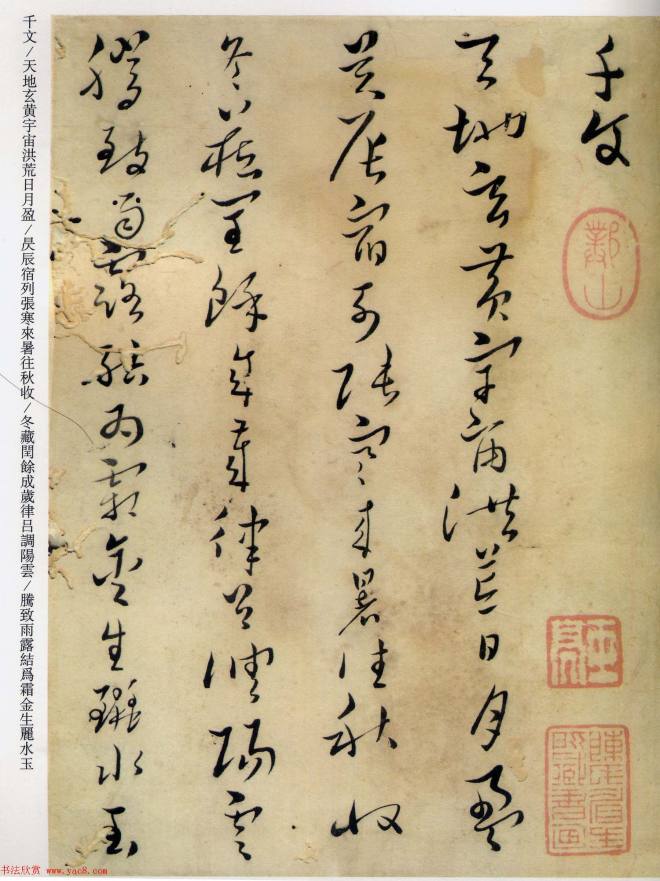 千文
天地玄黃宇宙洪荒日月盈
昃辰宿列張寒來暑往秋收
冬藏閏餘成歲律呂調陽雲
騰致雨露結爲霜金生麗水玉
千文/天地玄黃宇宙洪荒日月盈/昃辰宿列張寒來暑往秋收/冬藏閏餘成歲律呂調陽雲/騰致雨露結爲霜金生麗水玉
书法欣赏 www.yac8.com